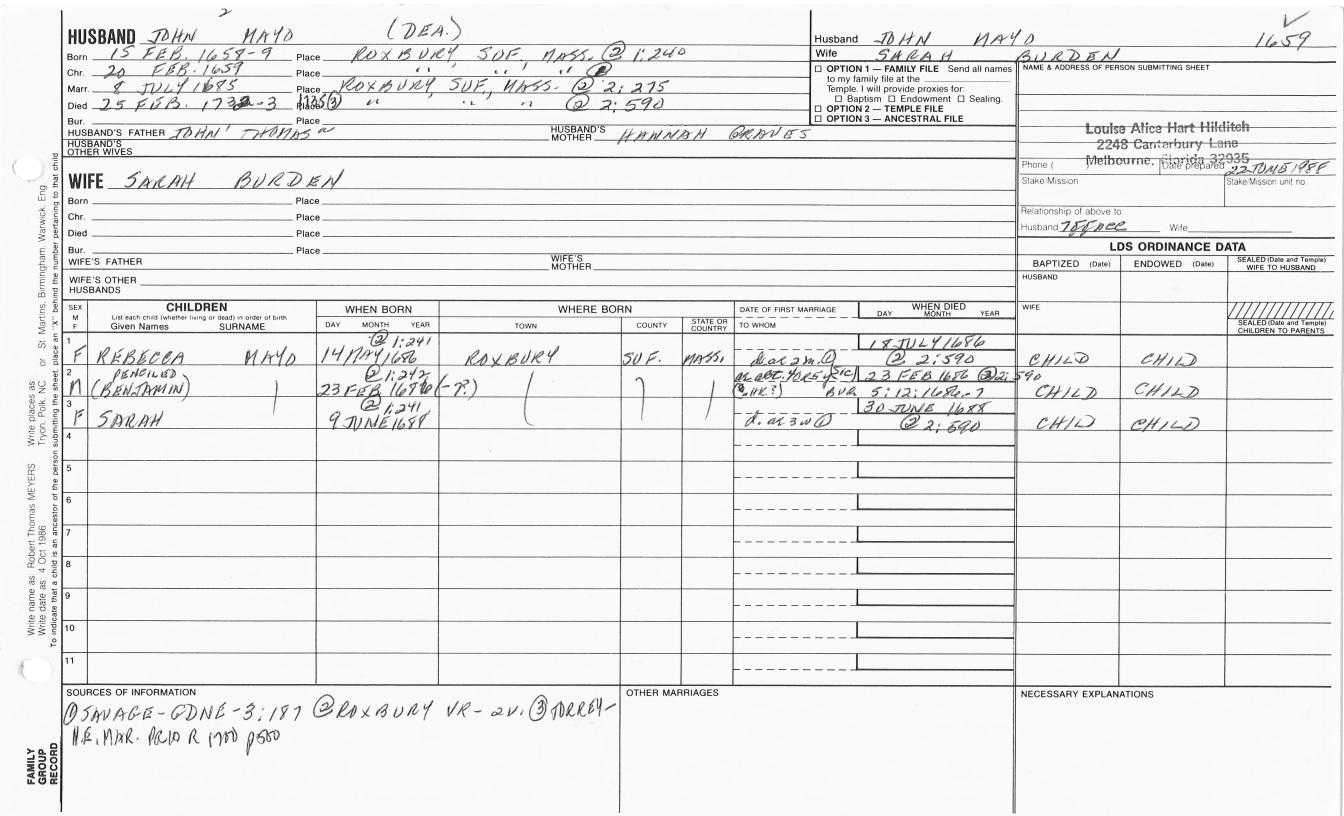 2
HUSBAND JOHN MAYO (DEA.)
Born 15 FEB. 1658-9 Place ROXBURY, SUF, MASS. ② 1:240
Chr. 20 FEB. 1659 Place " " "
Marr. 8 JULY 1685 Place ROXBURY, SUF., MASS. ② 2:275
Died 25 FEB. 1732-3 1725(3) Place " " " ② 2:590
Bur.
HUSBAND'S FATHER JOHN' THOMAS HUSBAND'S MOTHER HANNAH GRAVES
HUSBAND'S OTHER WIVES
WIFE SARAH BURDEN
Born Place
Chr. Place
Died Place
Bur. Place
WIFE'S FATHER WIFE'S MOTHER
WIFE'S OTHER HUSBANDS
Husband JOHN MAYO 1659
Wife SARAH BURDEN
☐ OPTION 1 — FAMILY FILE Send all names
to my family file at the
Temple. I will provide proxies for:
☐ Baptism ☐ Endowment ☐ Sealing.
☐ OPTION 2 — TEMPLE FILE
☐ OPTION 3 — ANCESTRAL FILE
NAME & ADDRESS OF PERSON SUBMITTING SHEET
Louise Alice Hart Hilditch
2248 Canterbury Lane
Melbourne, Florida 32935
Phone ( Date prepared 22 JUNE 1988
Stake/Mission Stake/Mission unit no.
Relationship of above to
Husband Wife
LDS ORDINANCE DATA
BAPTIZED (Date) ENDOWED (Date) SEALED (Date and Temple) WIFE TO HUSBAND
HUSBAND
WIFE
SEALED (Date and Temple) CHILDREN TO PARENTS
SEX M F
CHILDREN
List each child (whether living or dead) in order of birth
Given Names SURNAME
WHEN BORN
DAY MONTH YEAR
WHERE BORN
TOWN COUNTY STATE OR COUNTRY
DATE OF FIRST MARRIAGE
TO WHOM
WHEN DIED
DAY MONTH YEAR
1 ② 1:241 18 JULY 1686
F REBECCA MAYO 14 MAY 1686 ROXBURY SUF. MASS. d. ae 2 m. ① ② 2:590 CHILD CHILD
2 PENCILED ② 1:242 (SIC) 23 FEB 1686 ② 2:590
M (BENJAMIN) 23 FEB 1686 (-7?) BUR 5:12:1686-7 CHILD CHILD
3 ② 1:241 30 JUNE 1688
F SARAH 9 JUNE 1688 d. ae 3 w ① ② 2:590 CHILD CHILD
4
5
6
7
8
9
10
11
SOURCES OF INFORMATION
① SAVAGE-GDNE-3:187 ② ROXBURY VR-2V. ③ TORREY-
N.E. MAR. PRIOR 1700 p500
OTHER MARRIAGES
NECESSARY EXPLANATIONS
Write name as Robert Thomas MEYERS Write places as Tryon, Polk, NC or St. Martins, Birmingham, Warwick, Eng.
Write date as 4 Oct 1986
To indicate that a child is an ancestor of the person submitting the sheet, place an "X" behind the number pertaining to that child
FAMILY GROUP RECORD